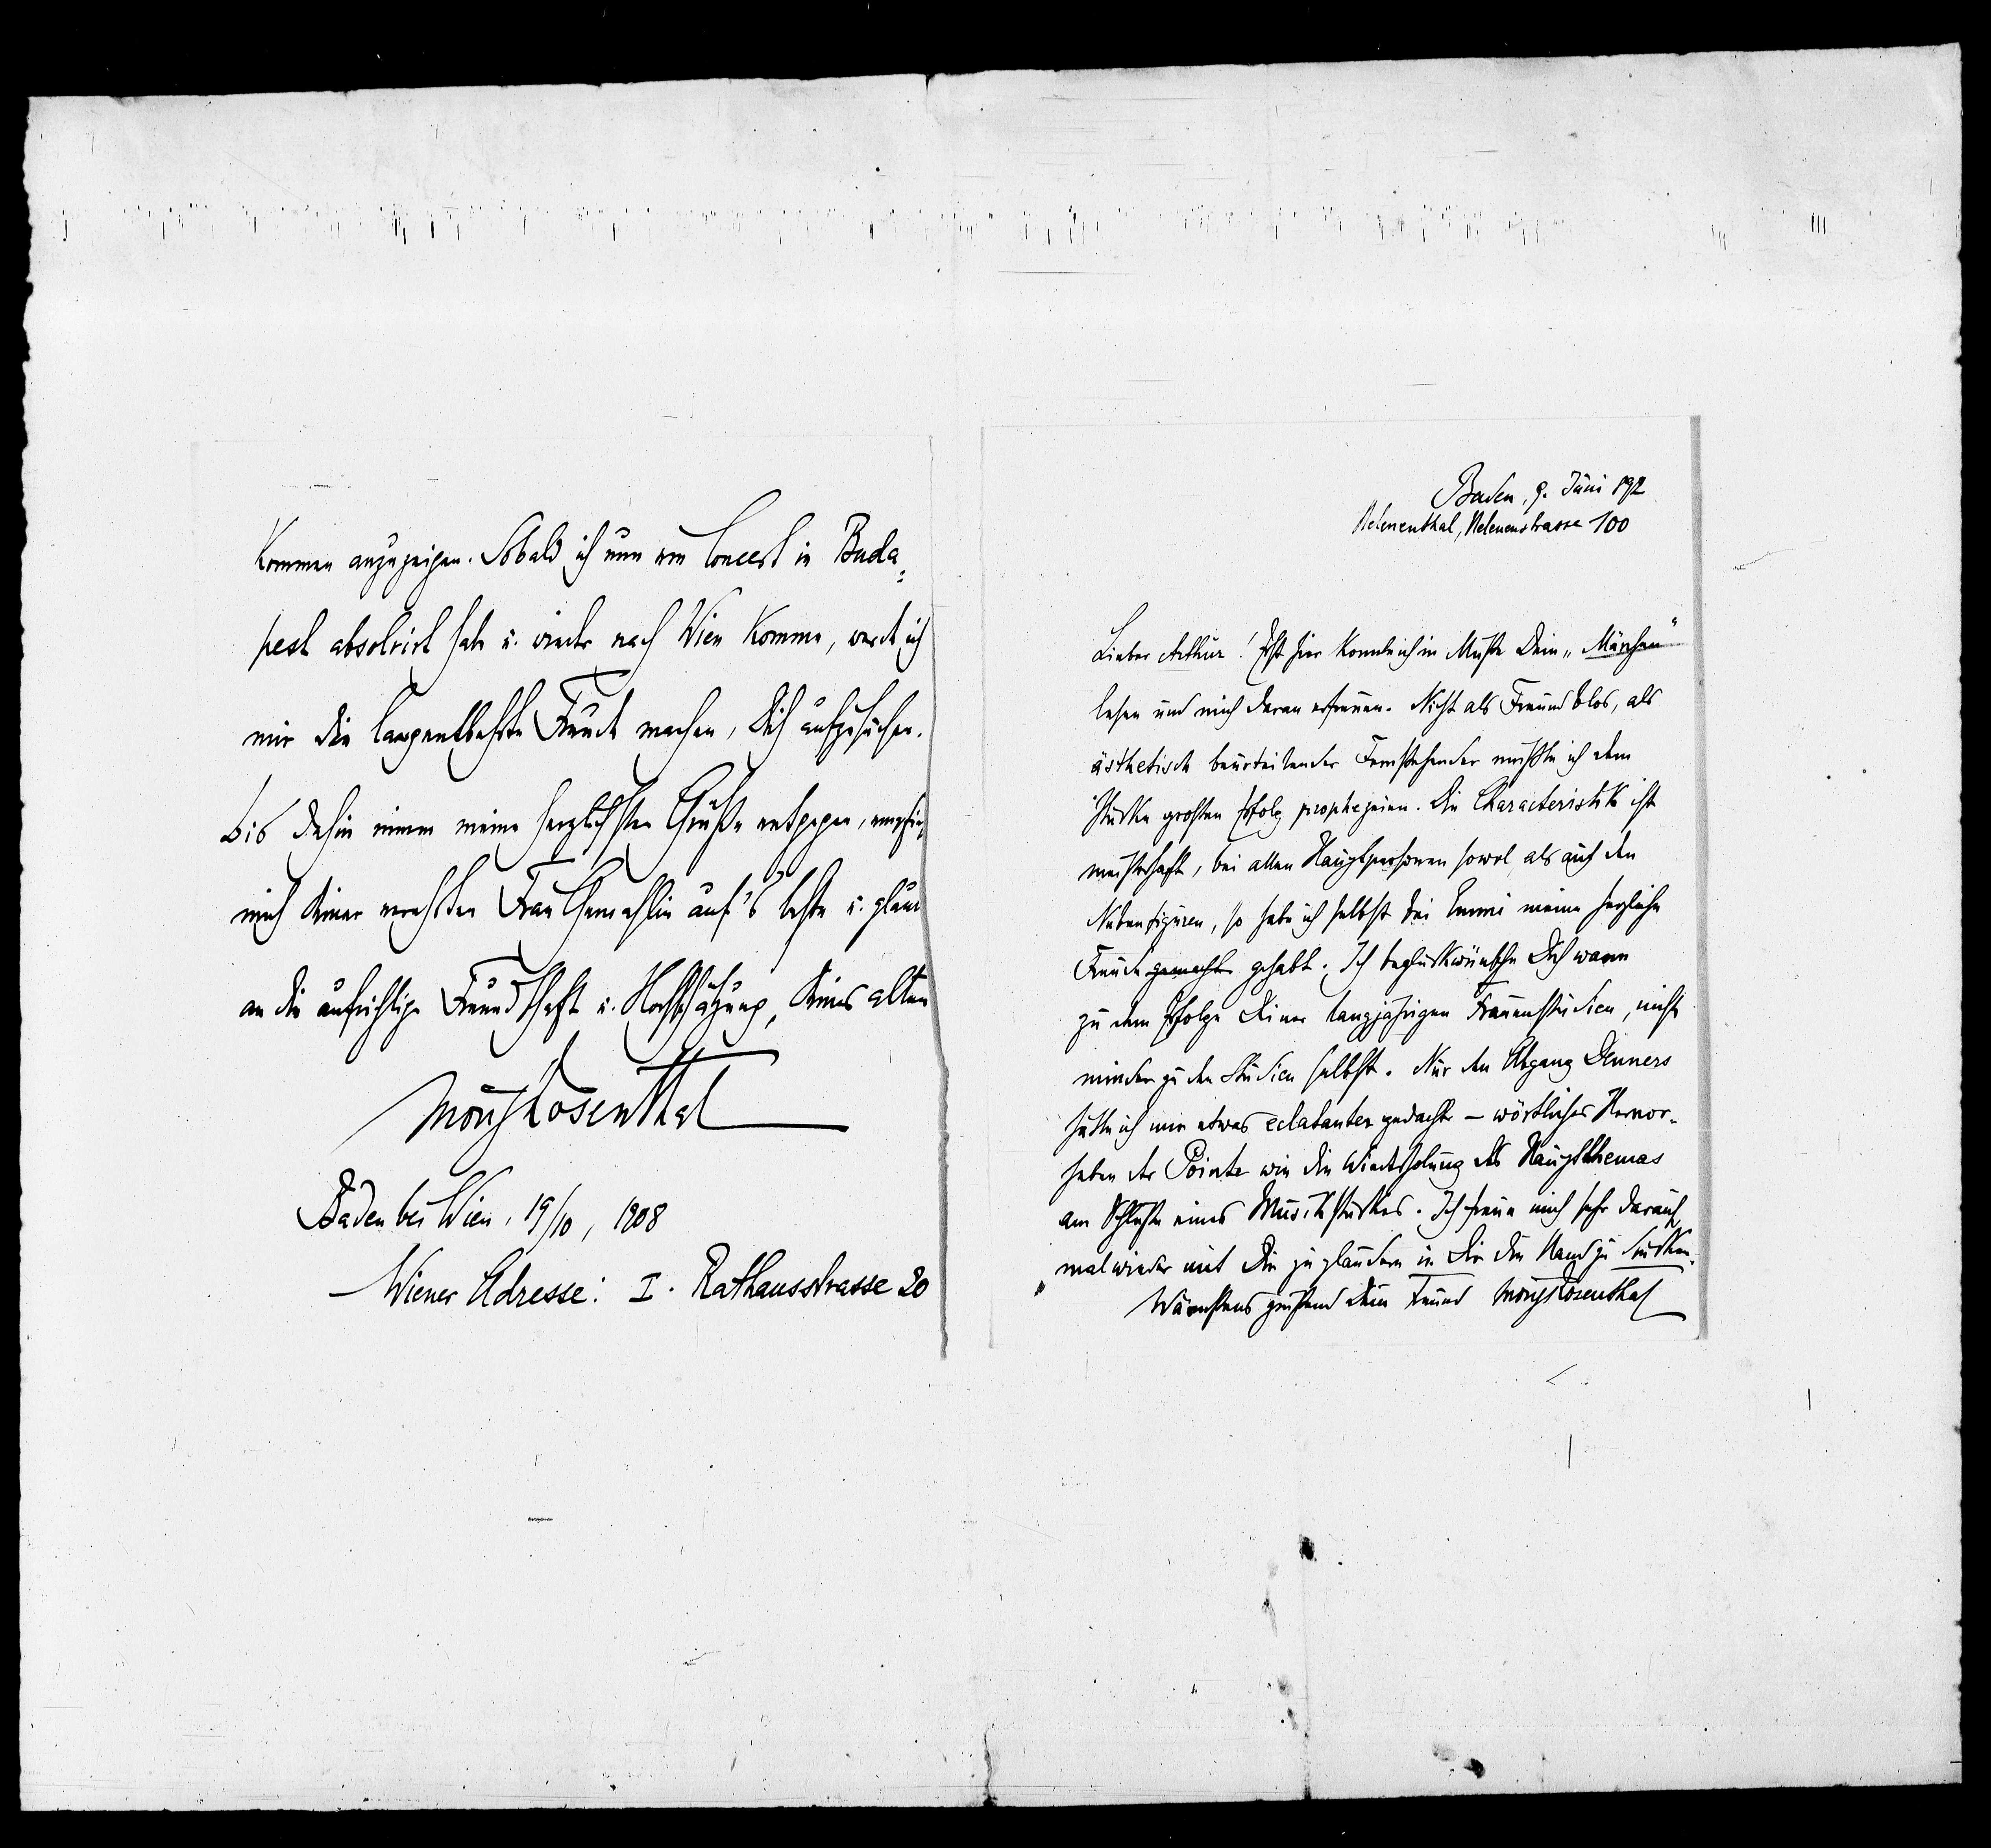 Kommen anzuzeigen. Sobald ich nun ein Concert in Buda=
pest absolvirt habe u. wieder nach Wien komme, werde ich
mir die langentbehrte Freude machen, Dich aufzusuchen.
bis dahin nimm meine herzlichsten Grüße entgegen,
mich Deiner verehrten Frau Gemahlin auf's beste u. glaube
an die aufrichtige Freundschaft u. Hochschätzung, Deines alten
Moriz Rosenthal
Baden bei Wien, 19/10, 1908
— Wiener Adresse: I. Rathausstrasse 20
Baden, 9. Juni 892
Helenenthal, Helenenstrasse 100
Lieber Arthur! Erst hier konnte ich in Muße Dein „Märchen"
lesen und mich daran erfreuen. Nicht als Freund blos, als
ästhetisch beurteilender Fernstehender mußte ich dem
Stücke großen Erfolg prophezeien. Die Characteristik ist
meisterhaft, bei allen Hauptpersonen sowol, als auch den
Nebenfiguren, so habe ich selbst bei Emmi meine herzliche
Freude gemacht gehabt. Ich beglückwünsche Dich warm
zu dem Erfolge Deiner langjährigen Frauenstudien, nicht
minder zu den Studien selbst. Nur den Abgang Denners
hätte ich mir etwas eclatanter gedacht – wörtliches Hervor-
heben der Pointe wie die Wiederholung des Hauptthemas
am Schluße eines Musikstückes. Ich freue mich sehr darauf
mal wieder mit Dir zu plaudern u. Dir die Hand zu drücken.
Wärmstens grüßend Dein Freund Moriz Rosenthal